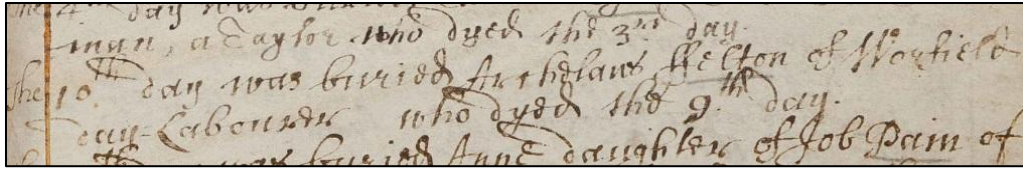 the 4th day was buried
man, a Taylor who dyed the 3rd day.
the 10th day was buried Archelaus ffelton of Worfield
day-Labourer who dyed the 9th day.
th was buried Anne daughter of Job Pain of